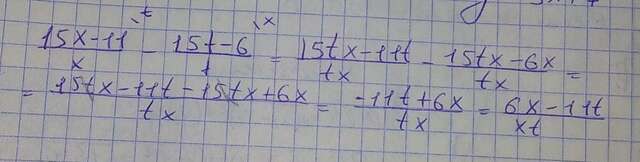 (15x-11)/x \t - (15t-6)/t \x = (15tx-11t)/tx - (15tx-6x)/tx =
= (15tx-11t-15tx+6x)/tx = (-11t+6x)/tx = (6x-11t)/xt